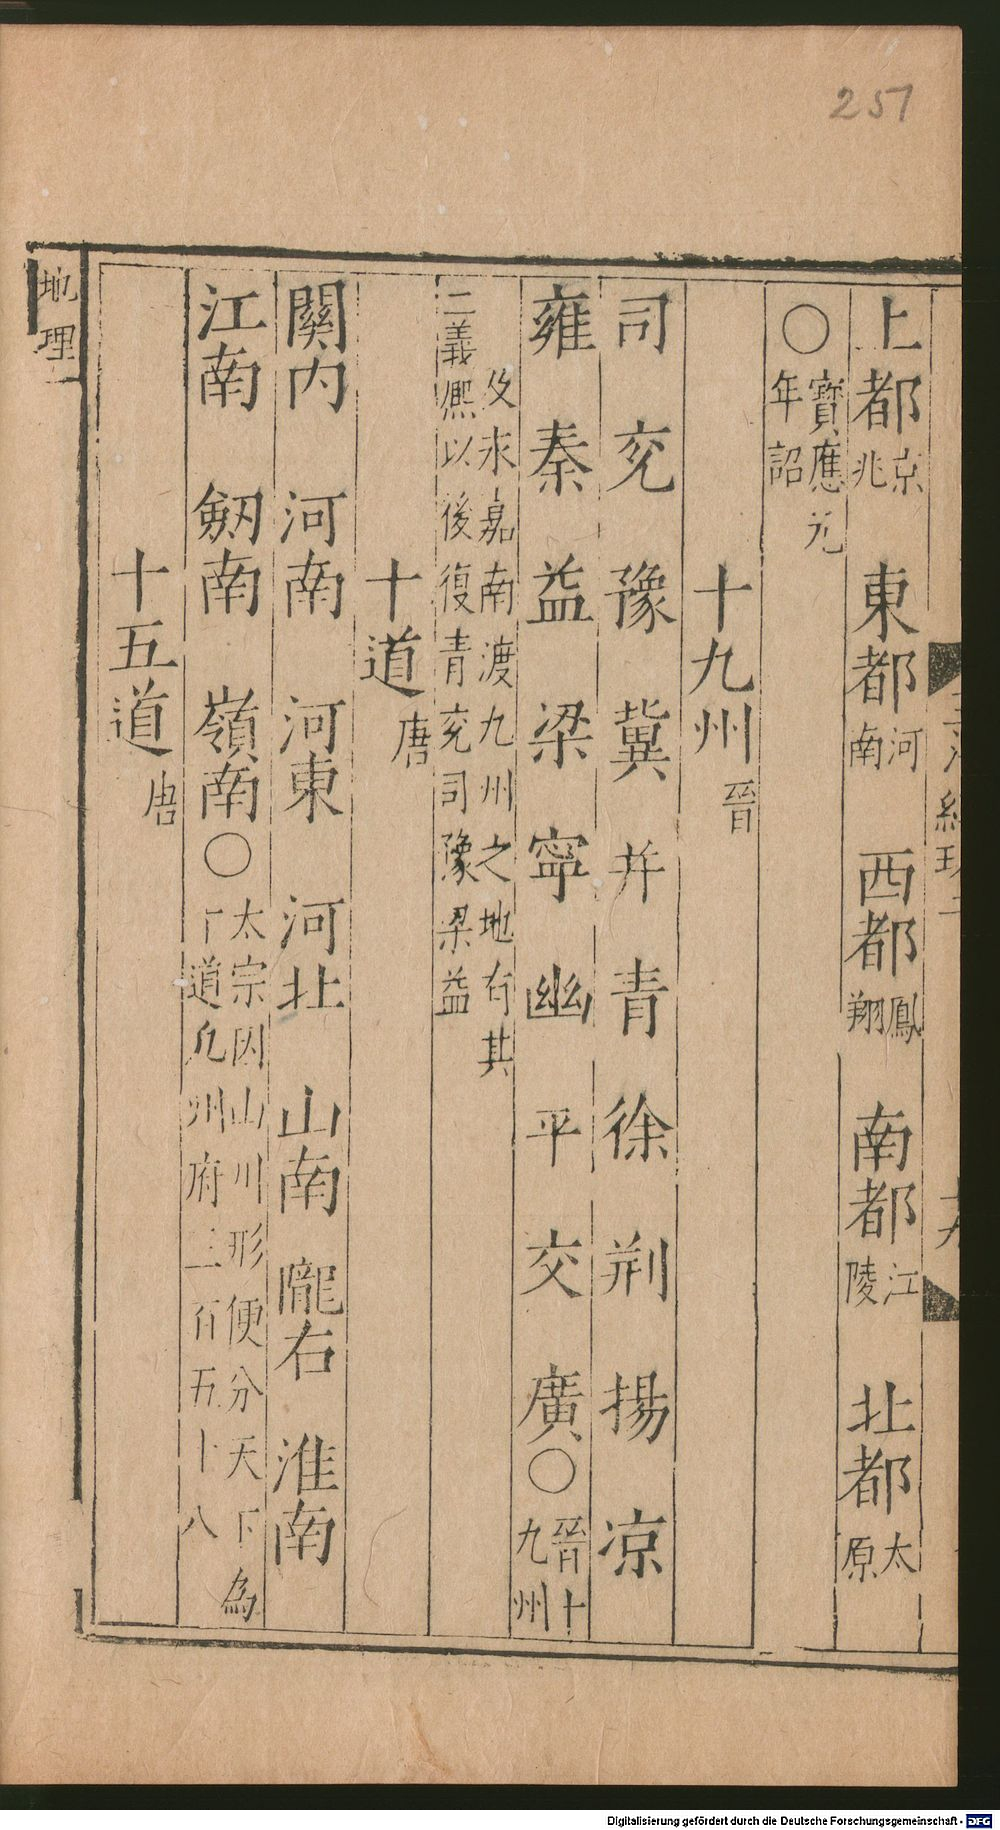 257
上都京兆 東都河南 西都鳳翔 南都江陵 北都太原
〇寶應元年詔
十九州晉
司 兖 豫 冀 并 青 徐 荆 揚 凉
雍 秦 益 梁 寧 幽 平 交 廣〇晉十九州
及永嘉南渡九州之地有其二義熈以後復青兖司豫梁益
十道唐
關内 河南 河東 河北 山南 隴右 淮南
江南 劒南 嶺南〇太宗因山川形便分天下為十道凡州府三百五十八
十五道唐
地理
Digitalisierung gefördert durch die Deutsche Forschungsgemeinschaft - DFG